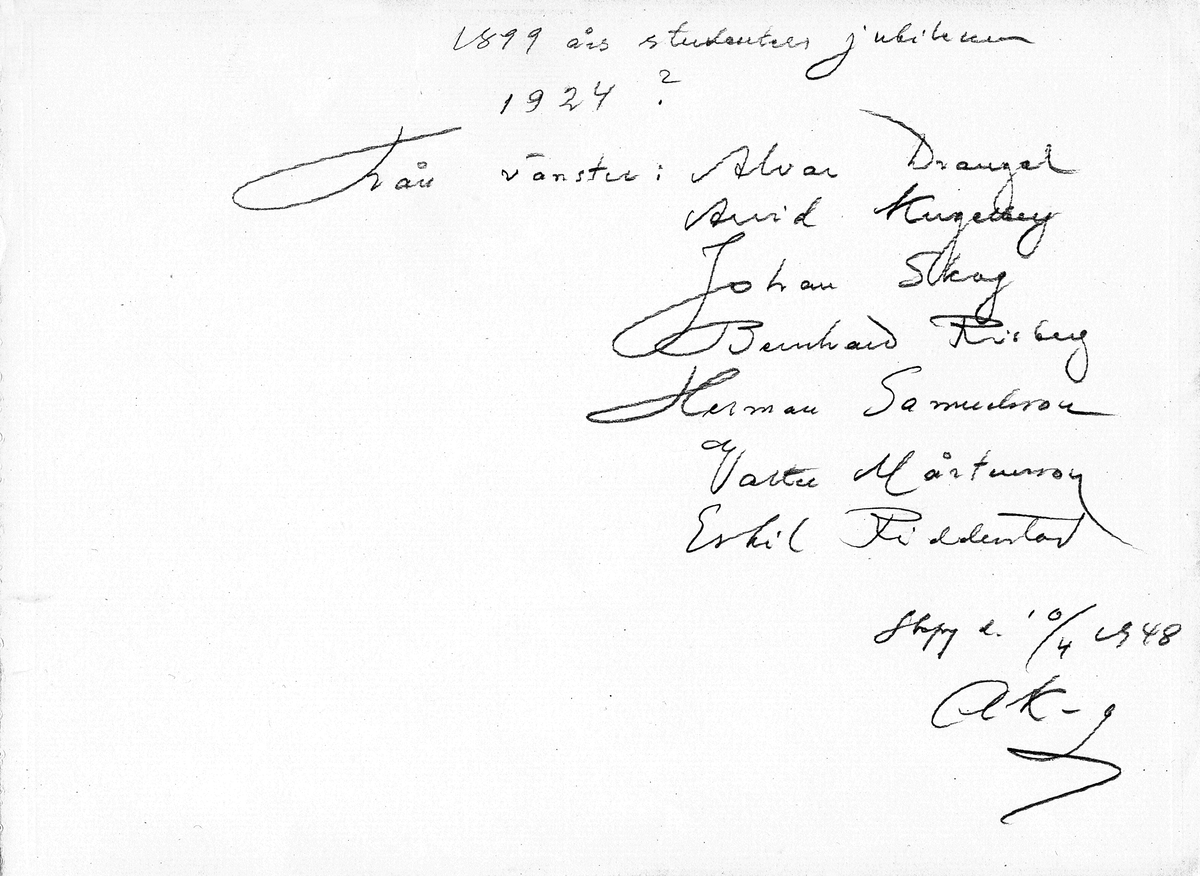 1899 års studenters jubileum
1924 ?
Från vänster: Alvar Drangel
Arvid Kugelberg
Johan Skog
Bernhard Risberg
Herman Samuelsson
Valter Mårtensson
Eskil Ridderstad
d. 10/4 1948
AK-g